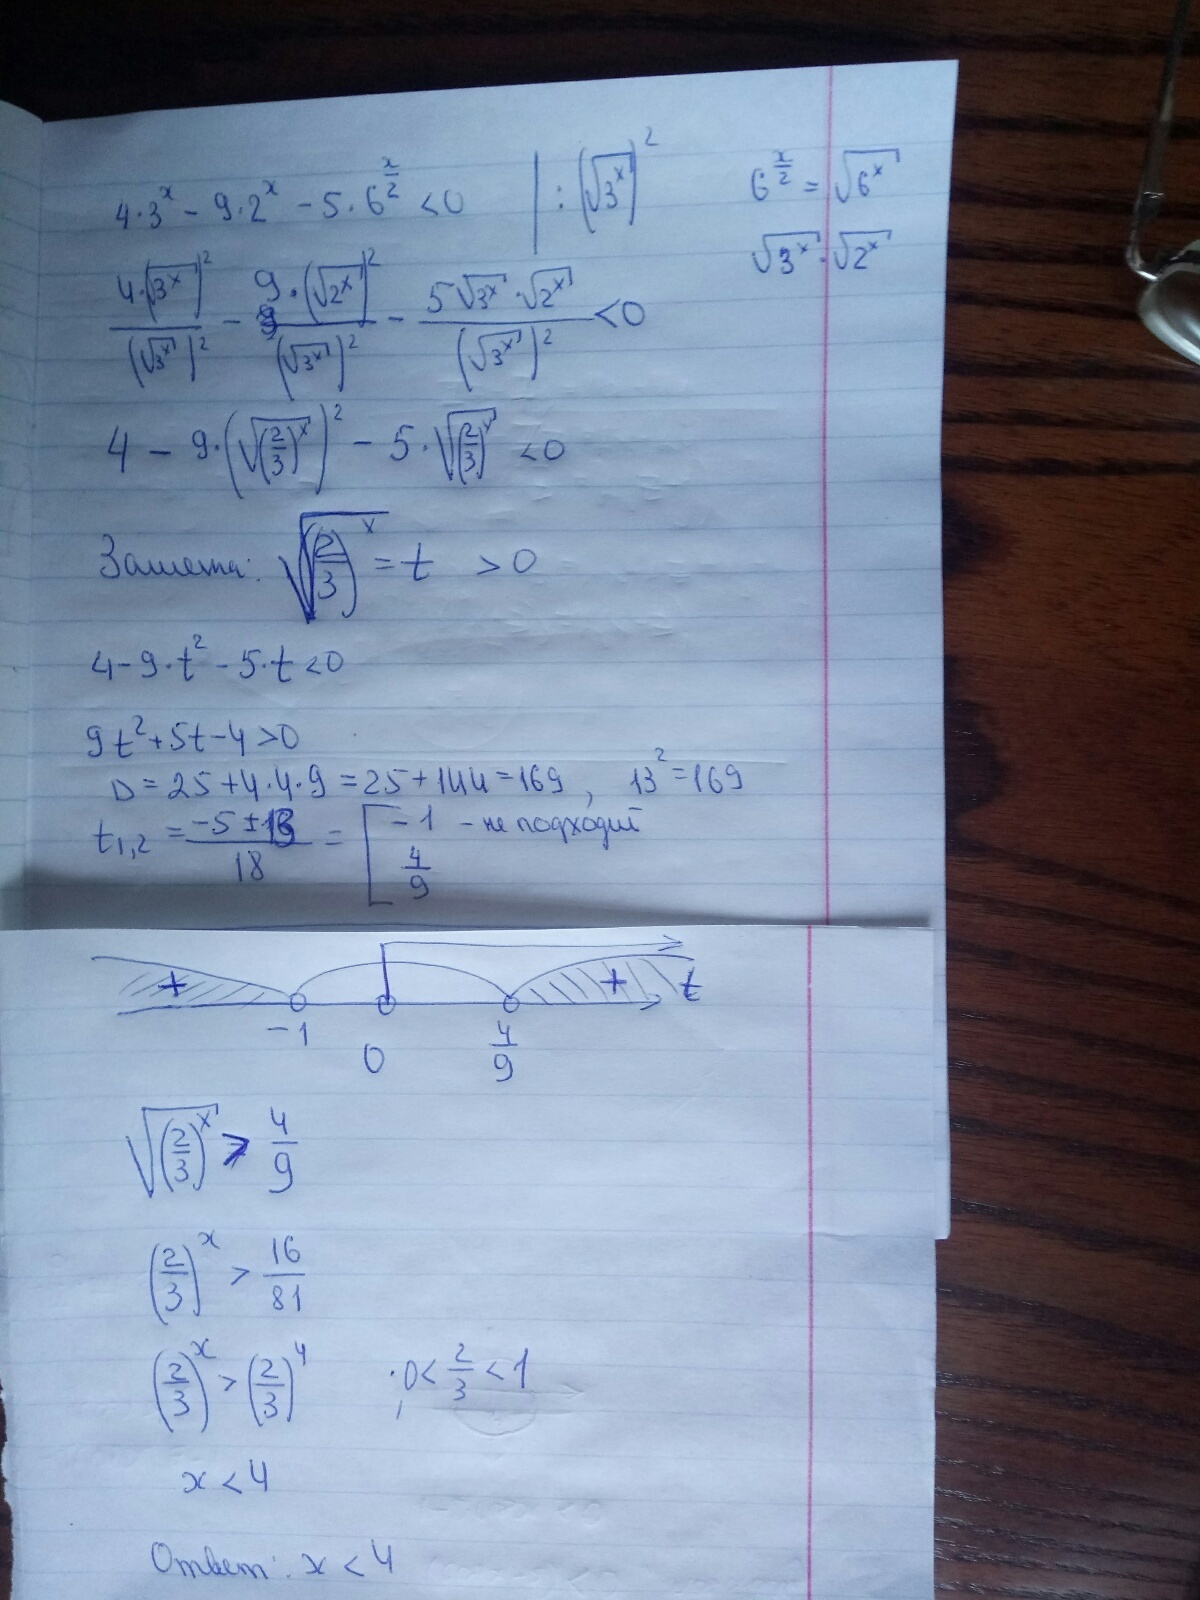 4·3^x - 9·2^x - 5·6^(x/2) < 0 | : (√(3^x))^2
6^(x/2) = √(6^x)
√(3^x) · √(2^x)
(4·(√(3^x))^2)/((√(3^x))^2) - (9·(√(2^x))^2)/((√(3^x))^2) - (5√(3^x)·√(2^x))/((√(3^x))^2) < 0
4 - 9·(√((2/3)^x))^2 - 5·√((2/3)^x) < 0
Замена: √((2/3)^x) = t > 0
4 - 9·t^2 - 5·t < 0
9t^2 + 5t - 4 > 0
D = 25 + 4·4·9 = 25 + 144 = 169, 13^2 = 169
t_1,2 = (-5 ± 13)/18 = [ -1 - не подходит
4/9
+ + t
-1 0 4/9
√((2/3)^x) > 4/9
(2/3)^x > 16/81
(2/3)^x > (2/3)^4 ; 0 < 2/3 < 1
x < 4
Ответ: x < 4